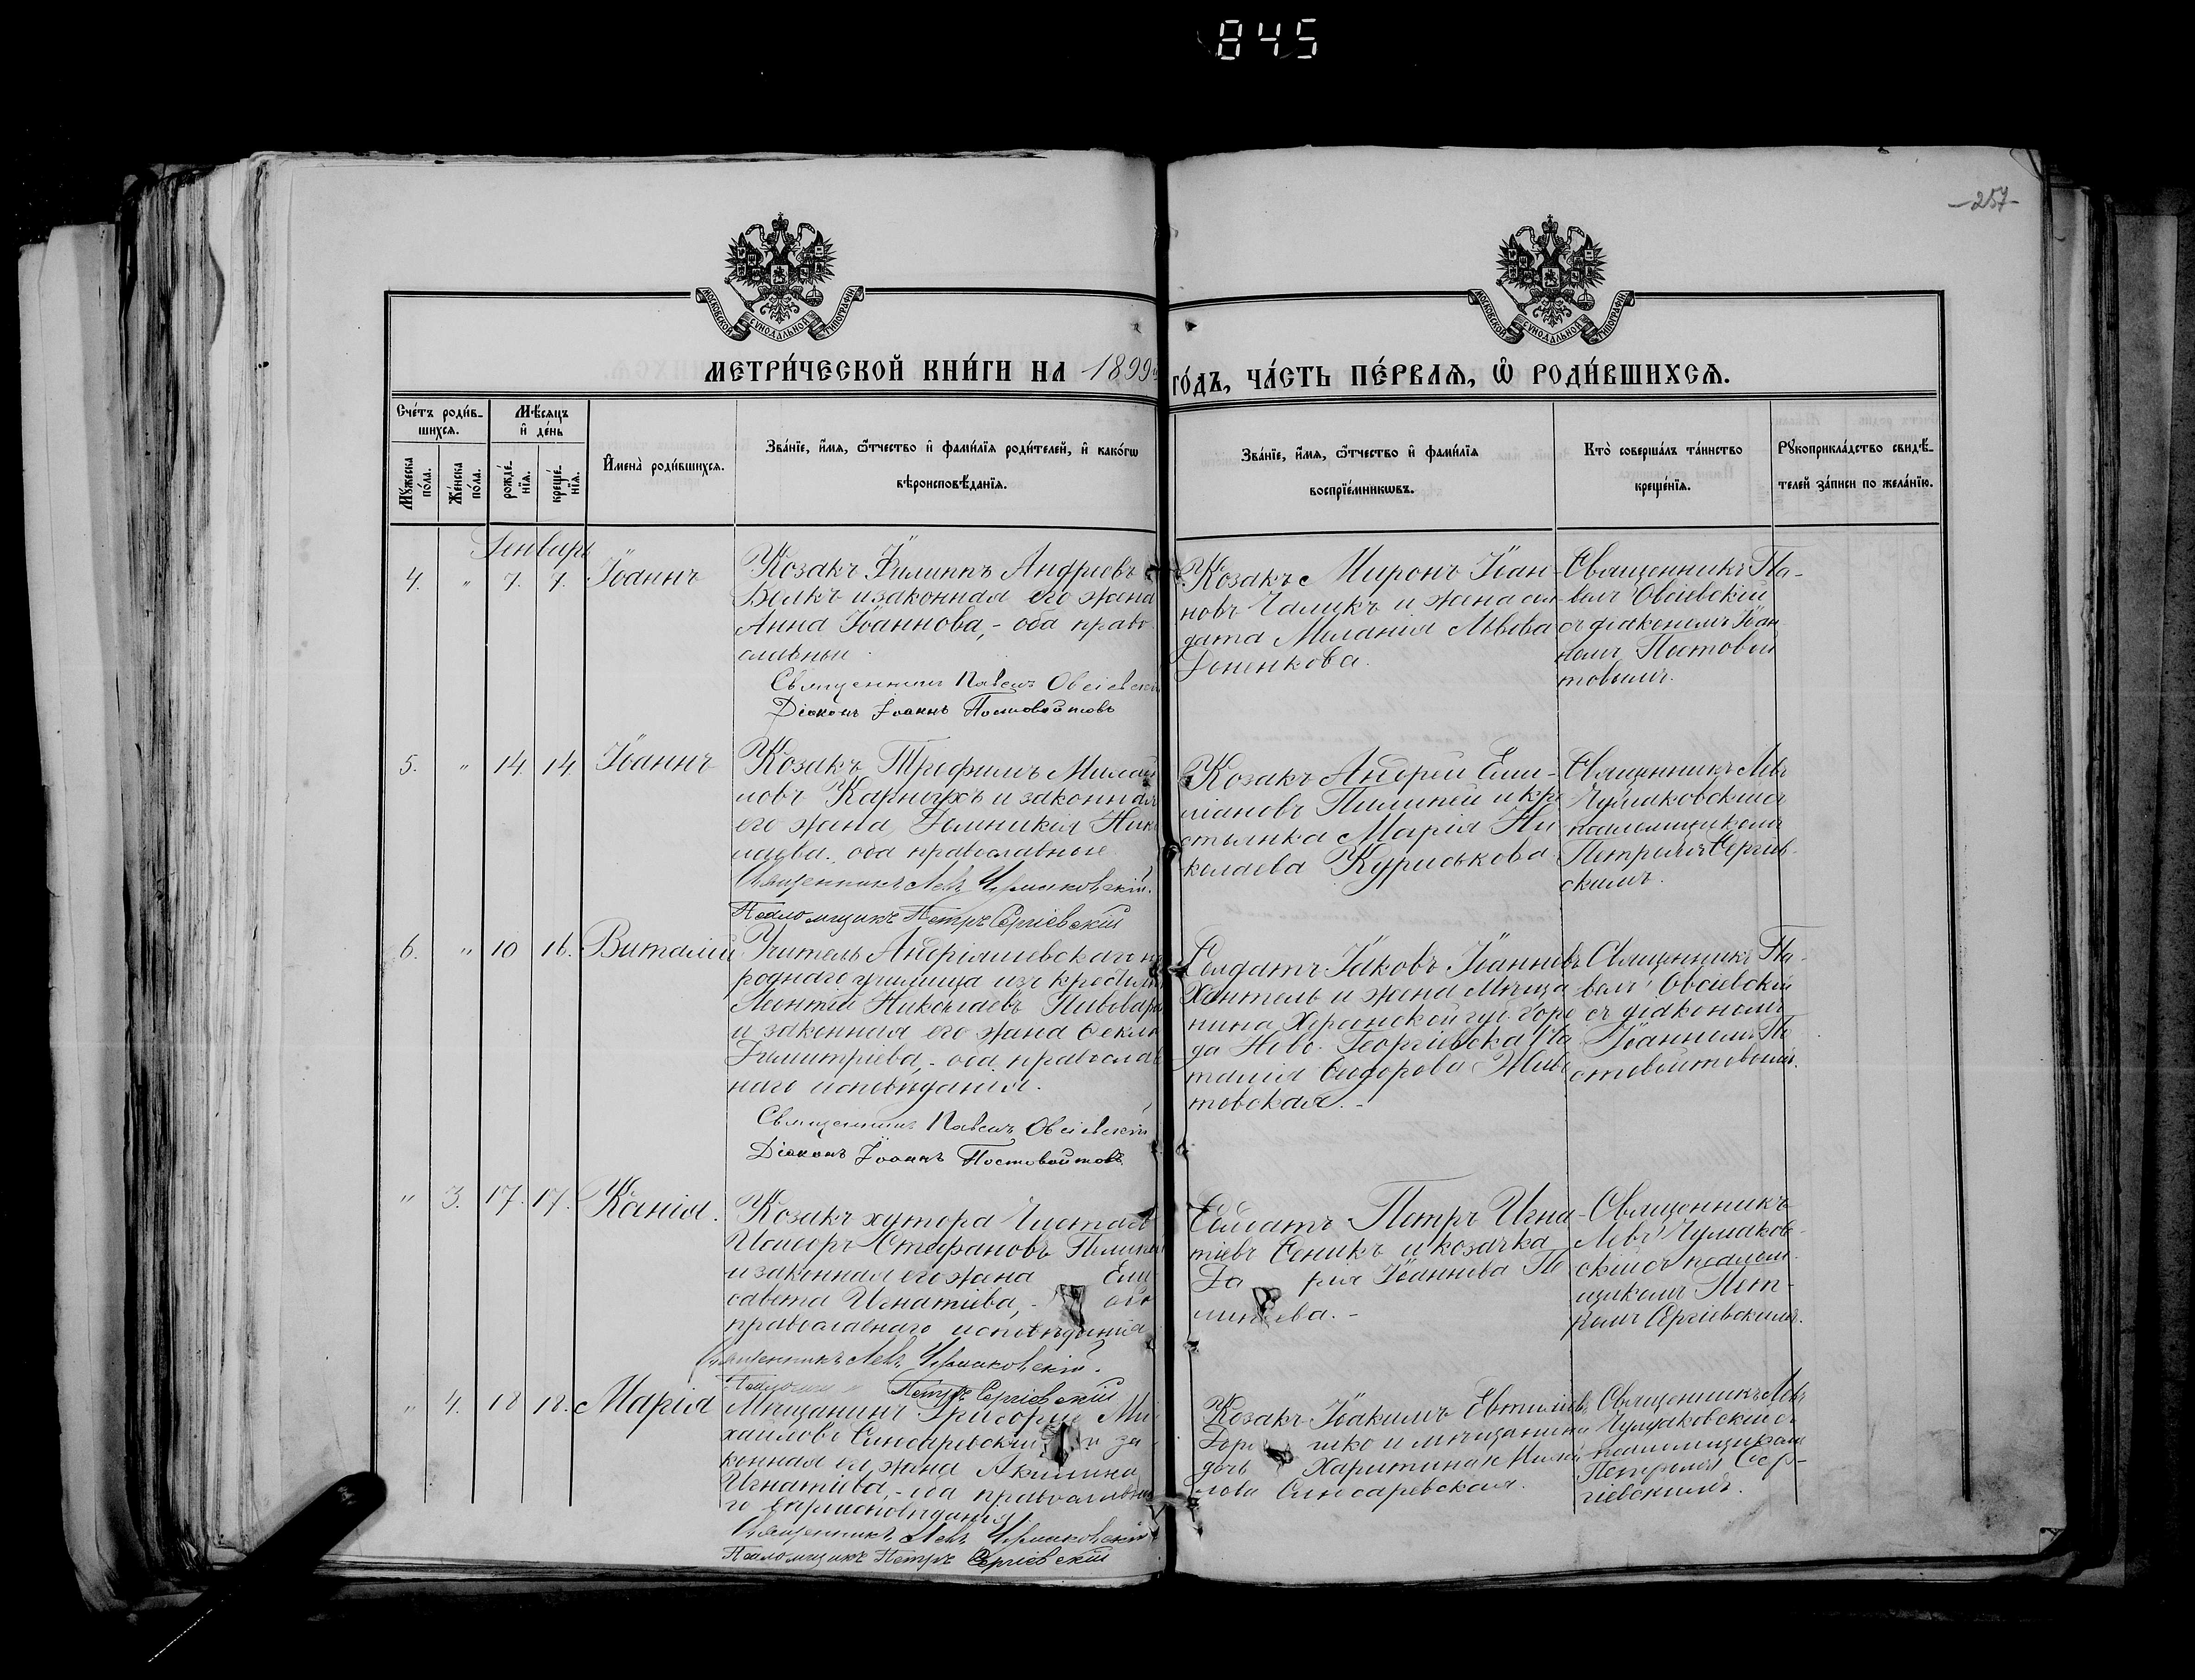 845
-257-
МОСКОВСКОЙ СУНОДАЛЬНОЙ ТИПОГРАФІИ
МОСКОВСКОЙ СУНОДАЛЬНОЙ ТИПОГРАФІИ
МЕТРИ́ЧЕСКОЙ КНИ́ГИ НА 1899 ГО́ДЪ, ЧА́СТЬ ПЕ́РВАѦ, Ѡ҆ РОДИ́ВШИХСѦ.
Сче́тъ роди́в-
шихсѧ.
Мꙋ́жеска по́ла.
Же́нска по́ла.
Мѣ́сѧцъ и҆ де́нь
рожде́-
нїѧ.
креще́-
нїѧ.
И҆мена̀ роди́вшихсѧ.
Зва́нїе, и҆́мѧ, ѻ҆́тчество и҆ фами́лїѧ роди́телей, и҆ како́гѡ
вѣроисповѣ́данїѧ.
Зва́нїе, и҆́мѧ, ѻ҆́тчество и҆ фами́лїѧ
воспрїе́мникѡвъ.
Кто̀ соверша́лъ та́инство
креще́нїѧ.
Рꙋкоприкла́дство свидѣ́-
телей за́писи по жела́нїю.
Генварь
4. " 7. 7. Іоаннъ
Козакъ Филиппъ Андреевъ
Волкъ и законная его жена
Анна Іоаннова, - оба право
славные
Священникъ Павелъ Овсіевскій
Діаконъ Іоаннъ Постовойтовъ
Козакъ Миронъ Іоан-
новъ Галицкъ и жена сол
дата Меланія Львова
Доненкова.
Священникъ Па-
велъ Овсіевскій
съ діакономъ Іоан
номъ Постовой
товымъ.
5. " 14 14 Іоаннъ
Козакъ Трофимъ
и законная
его жена Домникія Ник
лаева. оба православные
Священникъ Левъ Чумаковскій.
Псаломщикъ Петръ Сергіевскій
Козакъ Андрей Еми-
ліановъ Пилипей и кре
стьянка Марія Ни
колаева Куриськова
Священникъ Левъ
Чумаковскій съ
псаломщикомъ
Петромъ Сергіев-
скимъ.
6. " 10 16. Виталій
Учитель Андріяшевскаго на
роднаго училища изъ крестьянъ
Леонтій Николаевъ Пивовар
и законная его жена Ѳекла
Димитріева, - оба православ
наго исповѣданія.
Священникъ Павелъ Овсіевскій
Діаконъ Іоаннъ Постовойтовъ
Солдатъ Іаковъ Іоанновъ
Хантель и жена мѣща
нина Херсонской губ. горо
да Ново-Георгіевска На
талія Сидорова Живо
товская. -
Священникъ Па-
велъ Овсіевскій
съ діакономъ
Іоанномъ По
стовойтовымъ.
" 3. 17. 17. Ксенія.
Козакъ хутора Чистаго
Исидоръ Стефановъ Пилипей
и законная его жена Ели
савета Игнатіева, - оба
православнаго исповѣданія
Священникъ Левъ Чумаковскій.
Псаломщикъ Петръ Сергіевскій
Солдатъ Петръ Игна-
тіевъ Сеникъ и козачка
Да рія Іоаннова Пи
ева. -
Священникъ
Левъ Чумаков-
скій съ псалом-
щикомъ Пет-
ромъ Сергіевскимъ.
" 4. 18 18. Марія
Мѣщанинъ Григорій Ми
хаиловъ Слюсаревскій и за
конная его жена Акилина
Игнатіева, - оба православна
го вѣроисповѣданія
Священникъ Левъ Чумаковскій
Псаломщикъ Петръ Сергіевскій
Козакъ Іоакимъ Евтихіевъ
и мѣщанина
дочь Харитина
лова Слюсаревская.
Священникъ Левъ
Чумаковскій съ
псаломщикомъ
Петромъ Сер-
гіевскимъ.